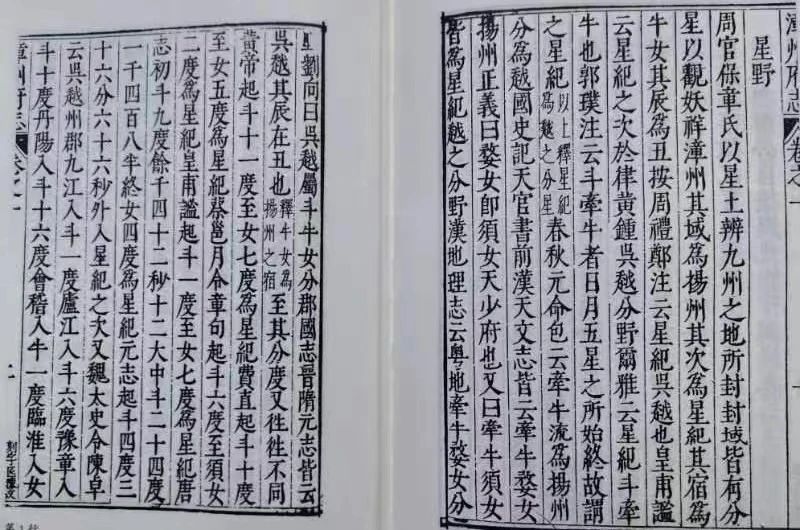 漳州府志 卷之一
星野
周官保章氏以星土辨九州之地所封封域皆有分
星以觀妖祥漳州其域為揚州其次為星紀其宿為
牛女其辰為丑按周禮鄭注云星紀吳越也皇甫謐
云星紀之次於律黃鍾吳越分野爾雅云星紀斗牽
牛也郭璞注云斗牽牛者日月五星之所始終故謂
之星紀以上釋星紀為越之分星春秋元命包云牽牛流為揚州
分為越國史記天官書前漢天文志皆云牽牛婺女
揚州正義曰婺女即須女天少府也又曰牽牛須女
皆為星紀越之分野漢地理志云粤地牽牛婺女分
星劉向曰吳越屬斗牛女分郡國志晉隋元志皆云
吳越其辰在丑也釋牛女為揚州之宿至其分度又徃徃不同
黃帝起斗十一度至女七度為星紀費直起斗十度
至女五度為星紀蔡邕月令章句起斗六度至須女
二度為星紀皇甫謐起斗一度至女七度為星紀唐
志初斗九度餘千四十二秒十二大中斗二十四度
一千四百八半終女四度為星紀元志起斗四度三
十六分六十六秒外入星紀之次又魏太史令陳卓
云吳越州郡九江入斗一度廬江入斗六度豫章入
斗十度丹陽入斗十六度會稽入牛一度臨淮入女
漳州府志 卷之一 一